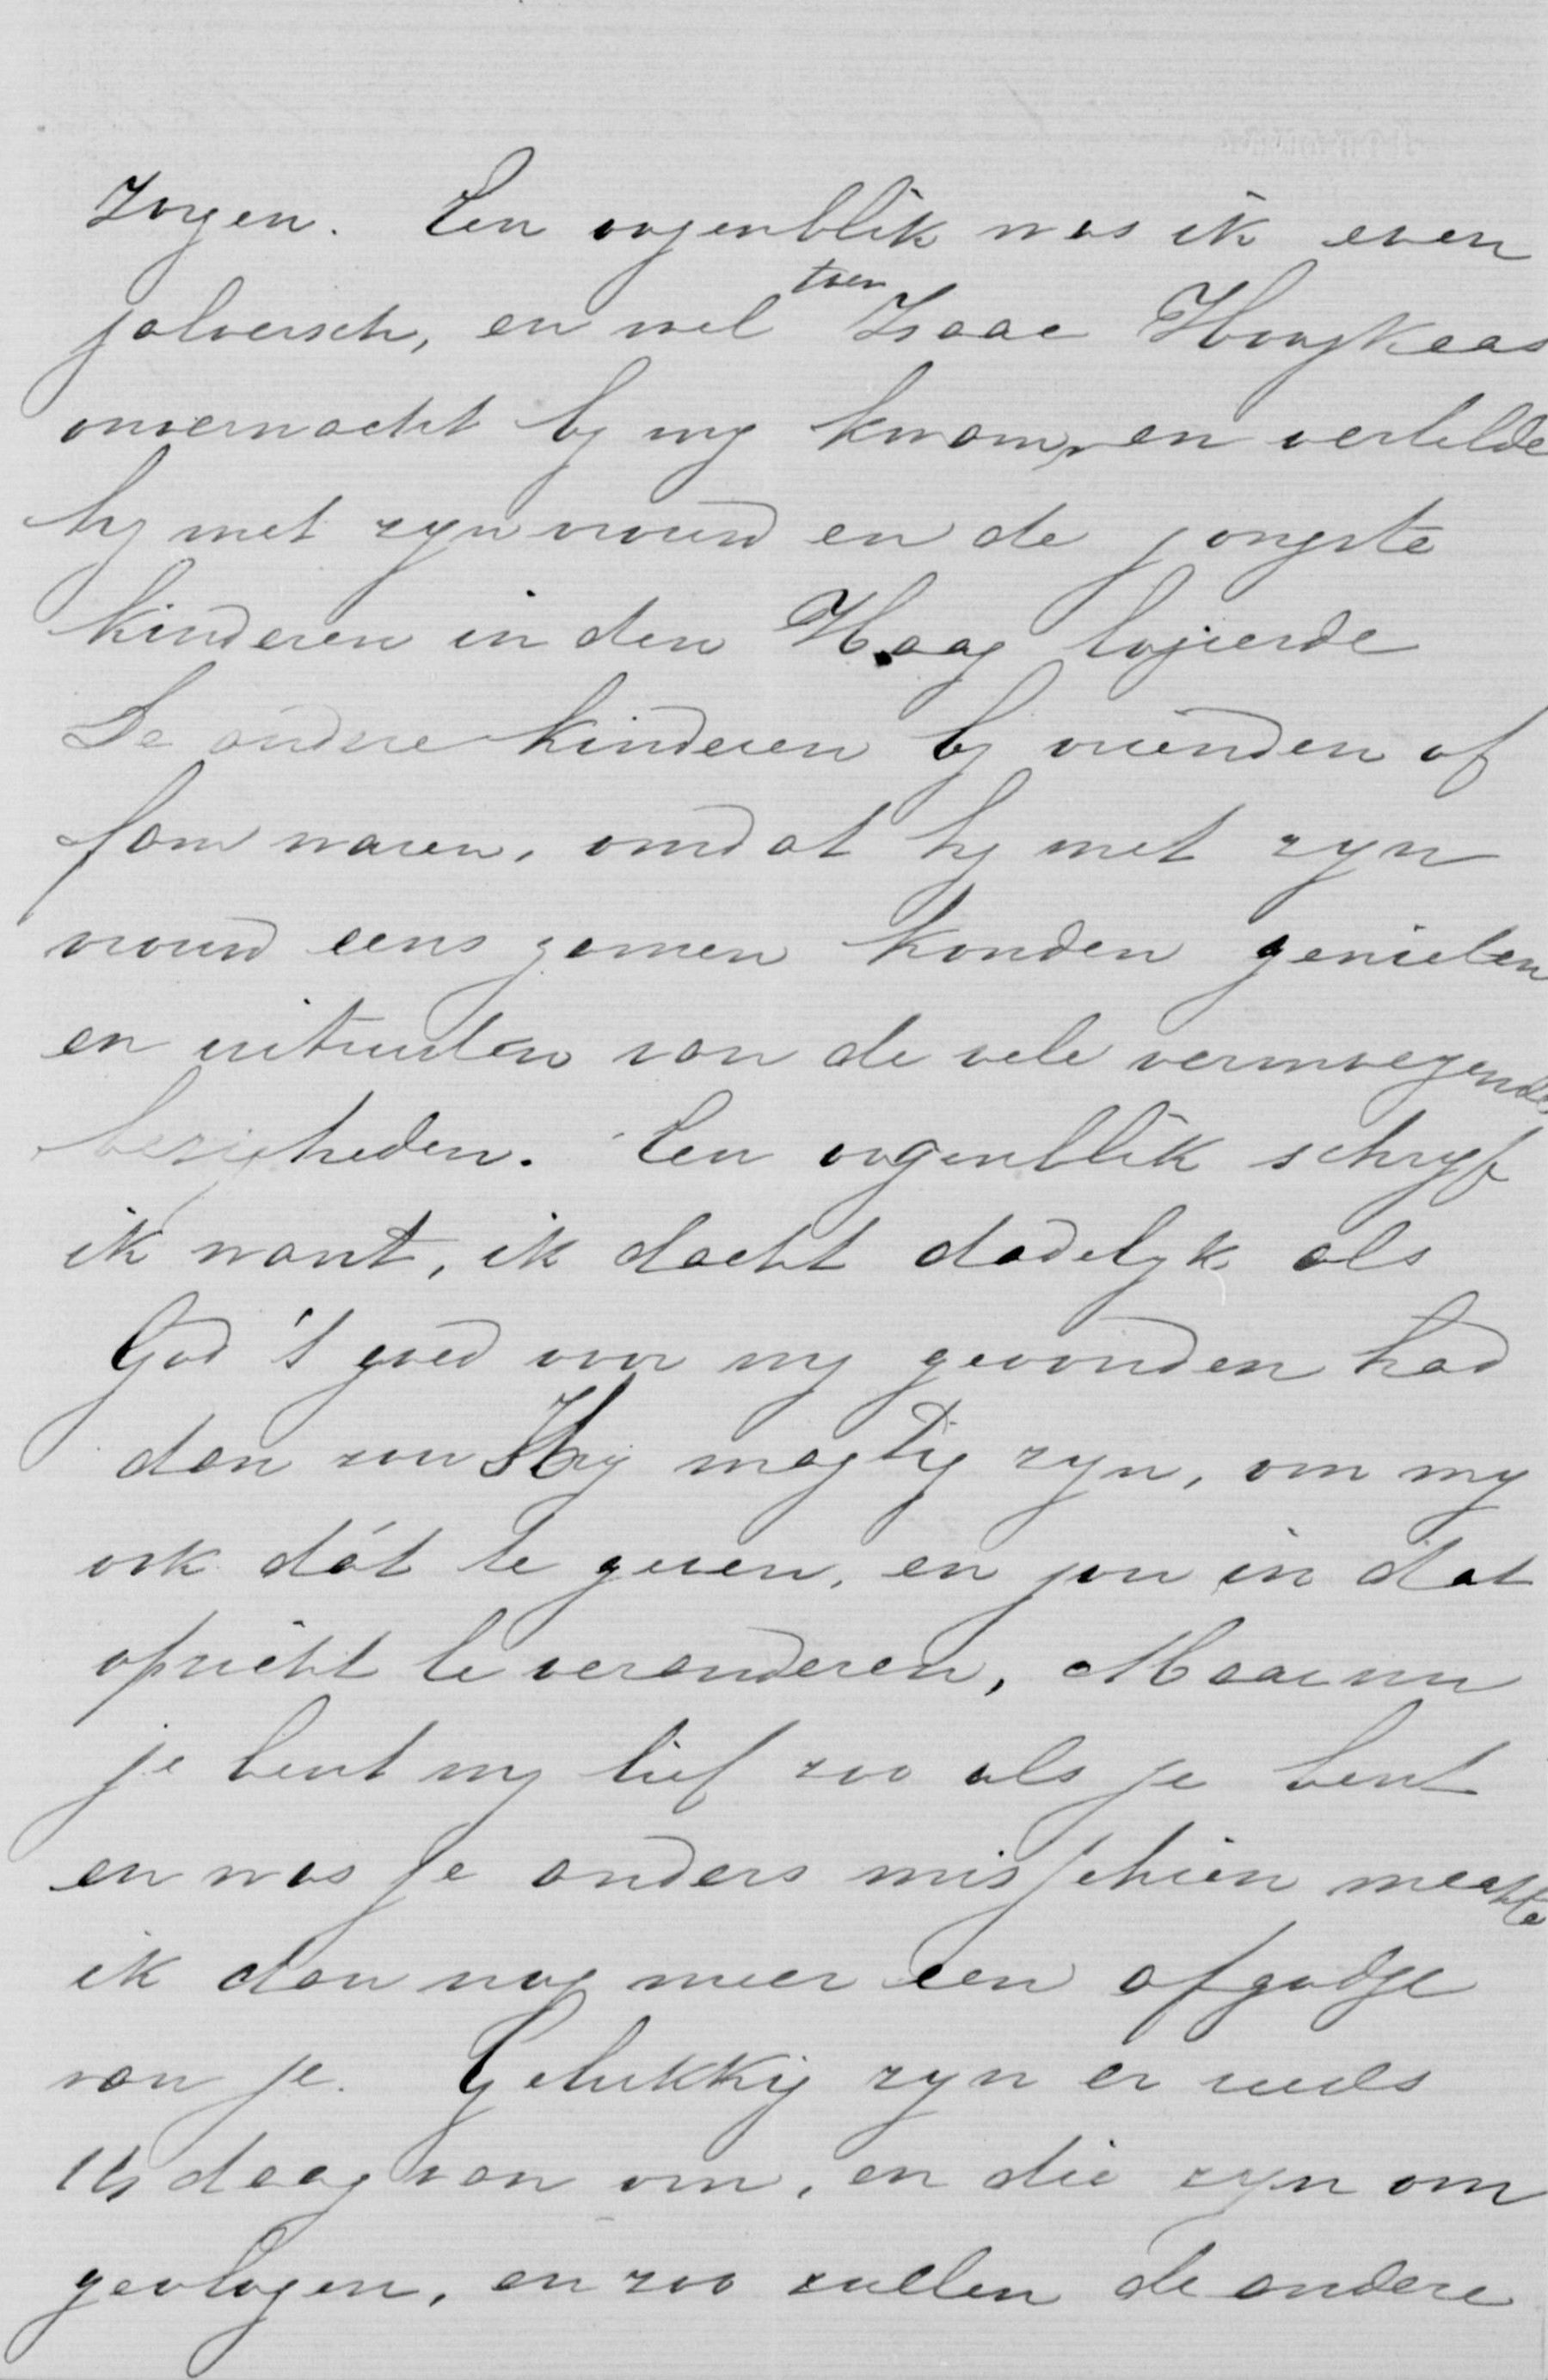 zorgen. Een oogenblik was ik even
jaloersch, en wel toen Isaac Hoogkaas
onverwacht by my kwam, en vertelde
hy met zyn vrouw en de jongste
kinderen in den Haag logeerde
De andere kinderen by vrienden of
fam waren, omdat hy met zyn
vrouw eens zamen konden genieten
en uitrusten van de vele vermoeyende
bezigheden. Een oogenblik schryf
ik want, ik dacht dadelyk als
God 't goed voor my gevonden had
dan zou Hy magtig zyn, om my
ook dát te geven, en jou in dat
opzicht te veranderen, Maar nu
je bent my lief zoo als je bent
en was je anders misschien maakte
ik dan nog meer een afgodje
van je. Gelukkig zyn er reeds
daag van om, en die zyn om
gevlogen, en zoo zullen de andere